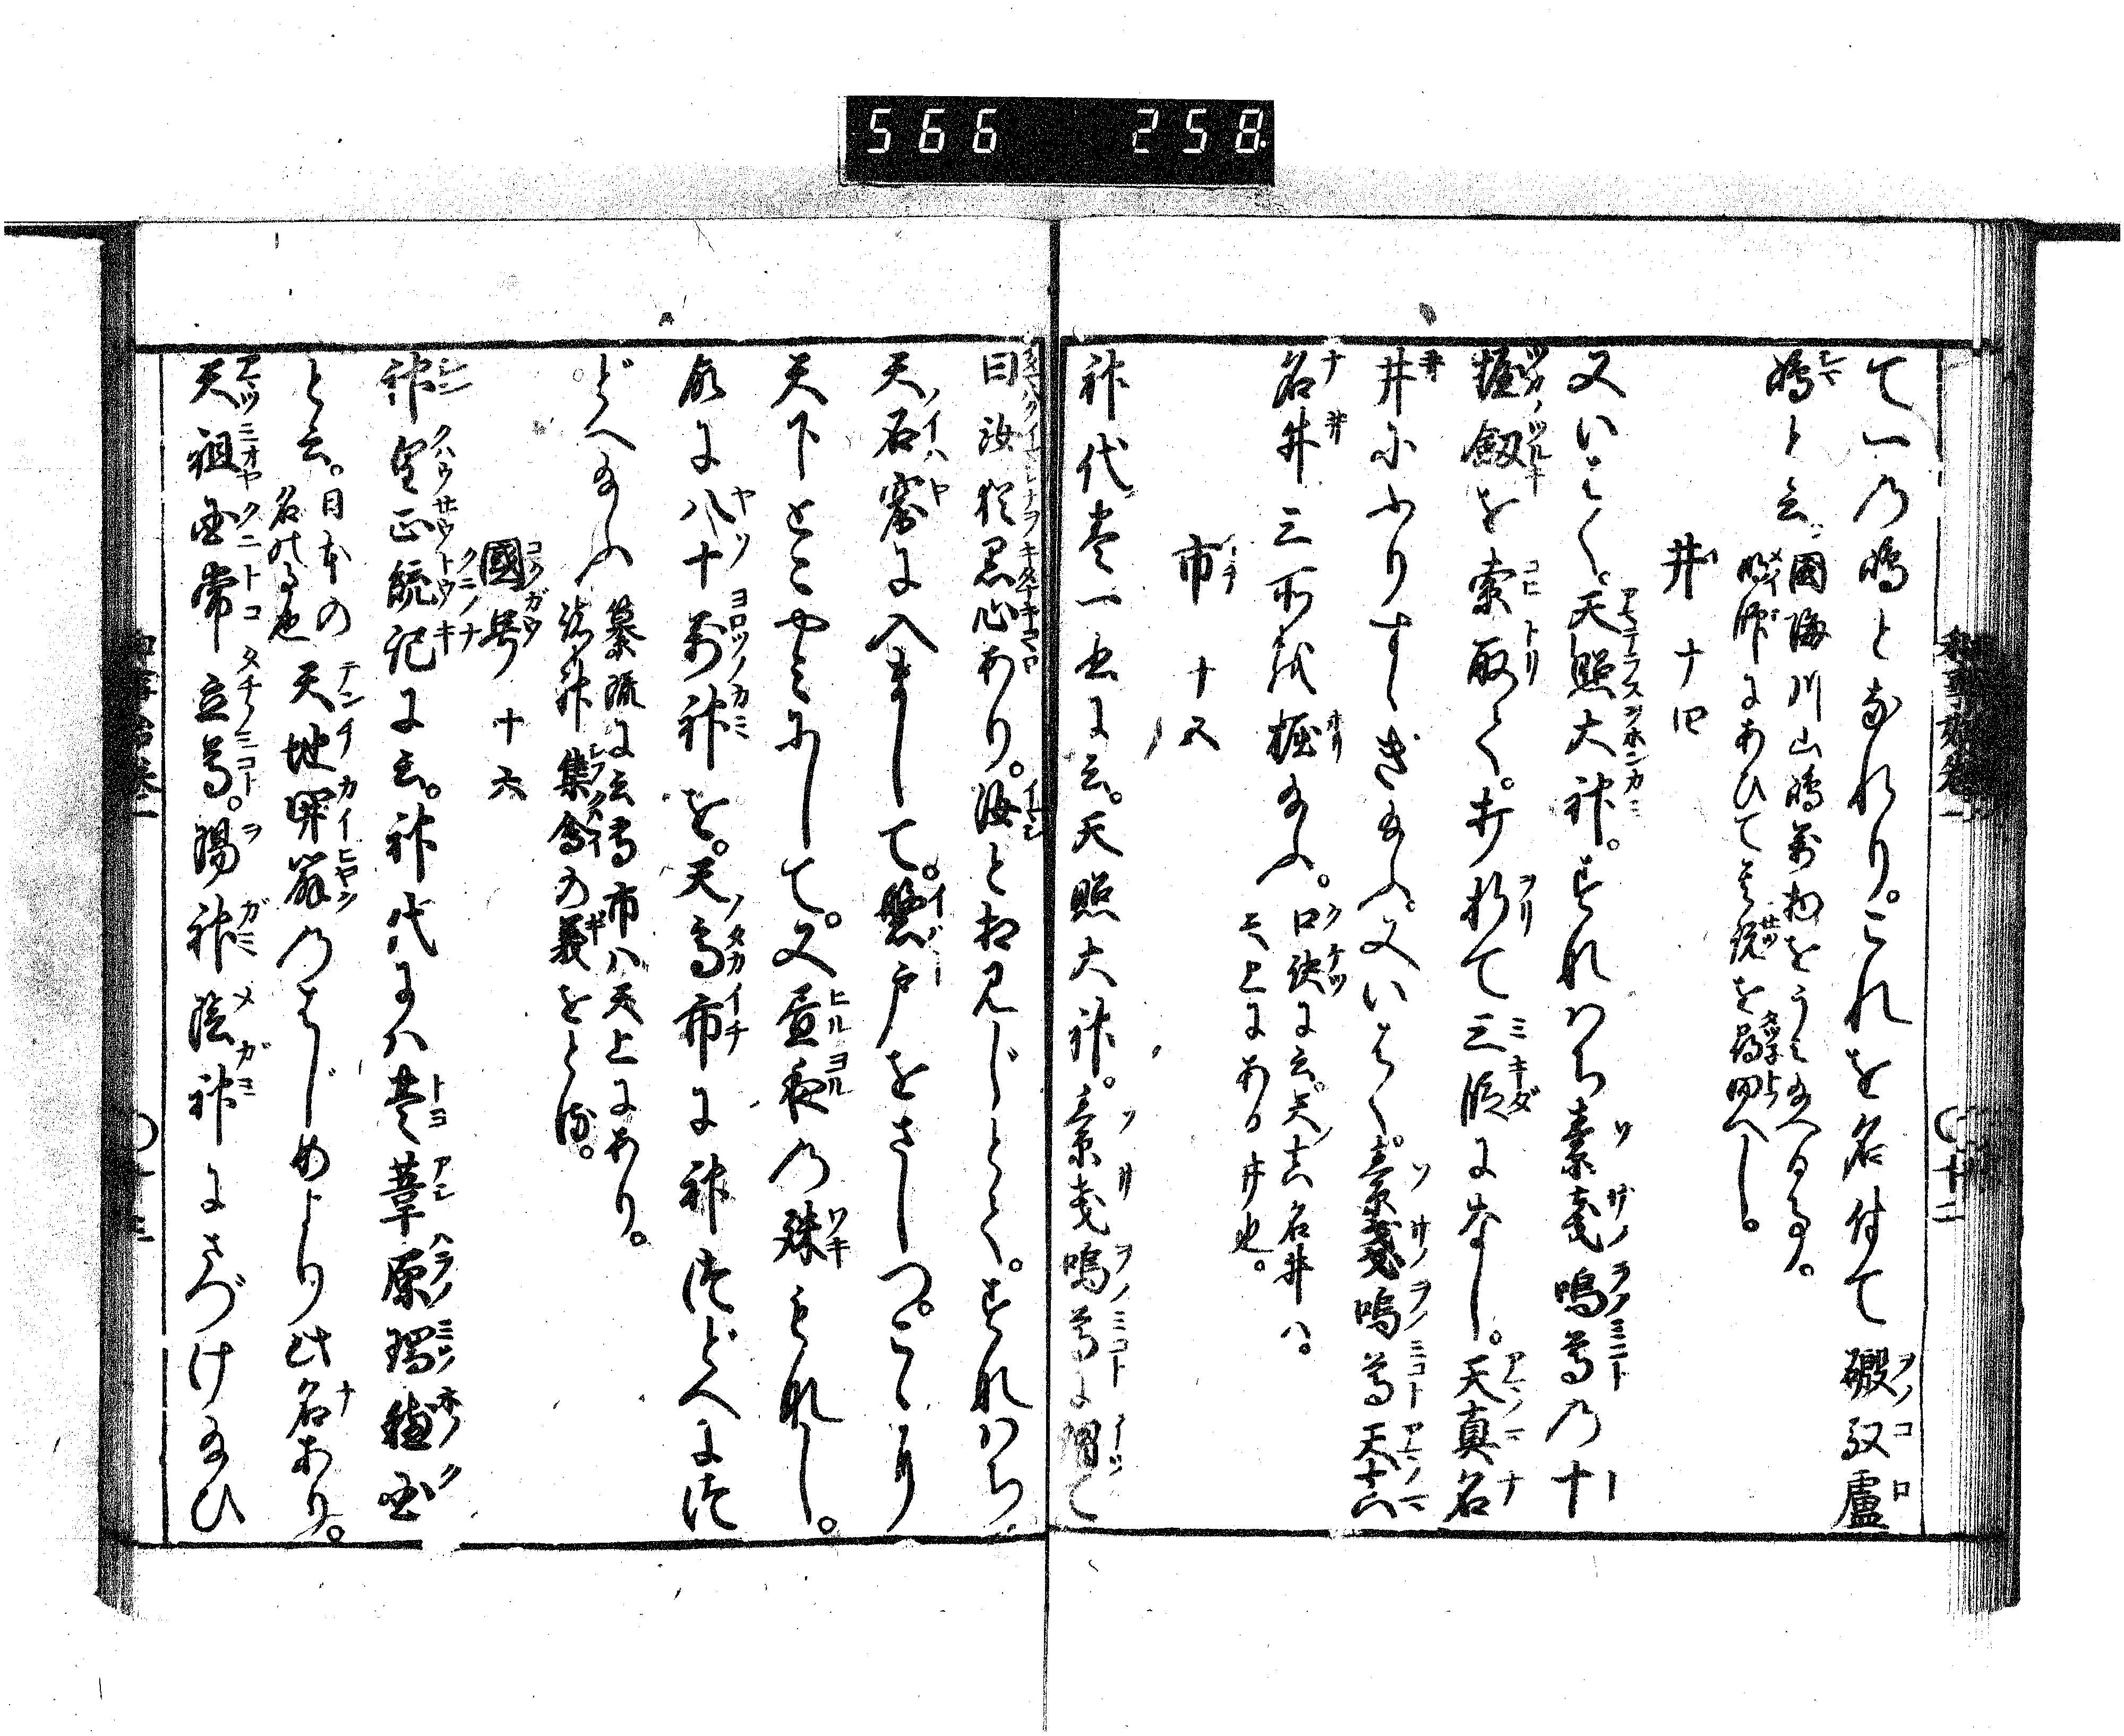 566 258
て一の嶋となれり。これを名付て磤馭盧
嶋と云。国海川山嶋萬物をうみ給へる事。
明師にあひて其説を尋問へし。
井 十四
又いはく。天照大神。すなはち素戔嗚尊の十
握劔を索取て。打折て三段になし。天真名
井にふりすゝぎ給ふ。又いはく。素戔嗚尊天真
名井三所を掘給ふ。口訣に云。天真名井ハ。
天上にある井也。
市 十五
神代巻一書に云。天照大神。素戔嗚尊に謂て
曰汝猶黒心あり。汝と相見じとて。すなはち
天石窟に入まして。磐戸をさしつ。こゝにをり
天下とこやみにして。又昼夜の殊もなし。
故に八十萬神を。天高市に神つどへにつ
どへ給ふ 纂疏に云高市ハ天上にあり。
諸神集會の義をとる。
國号 十六
神皇正統記に云。神代にハ豊葦原瑞穂国
と云。日本の
名のる也 天地開闢のはじめより此名あり。
天祖国常立尊。陽神陰神にさづけ給ひ
和事始巻一 〇十二
和事始巻一 〇十三